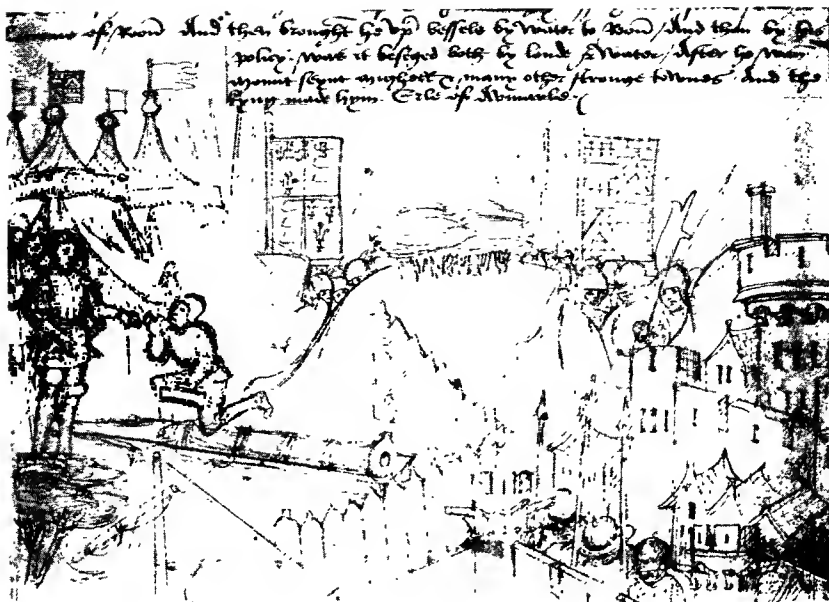 of Roon And then brought he vp vessels by water to Roon / And then by his
policy / was it beseged both by londe & water / After he wan
mount seynt mighell & many other stronge townes And the
kyng made hym Erle of Awmarle